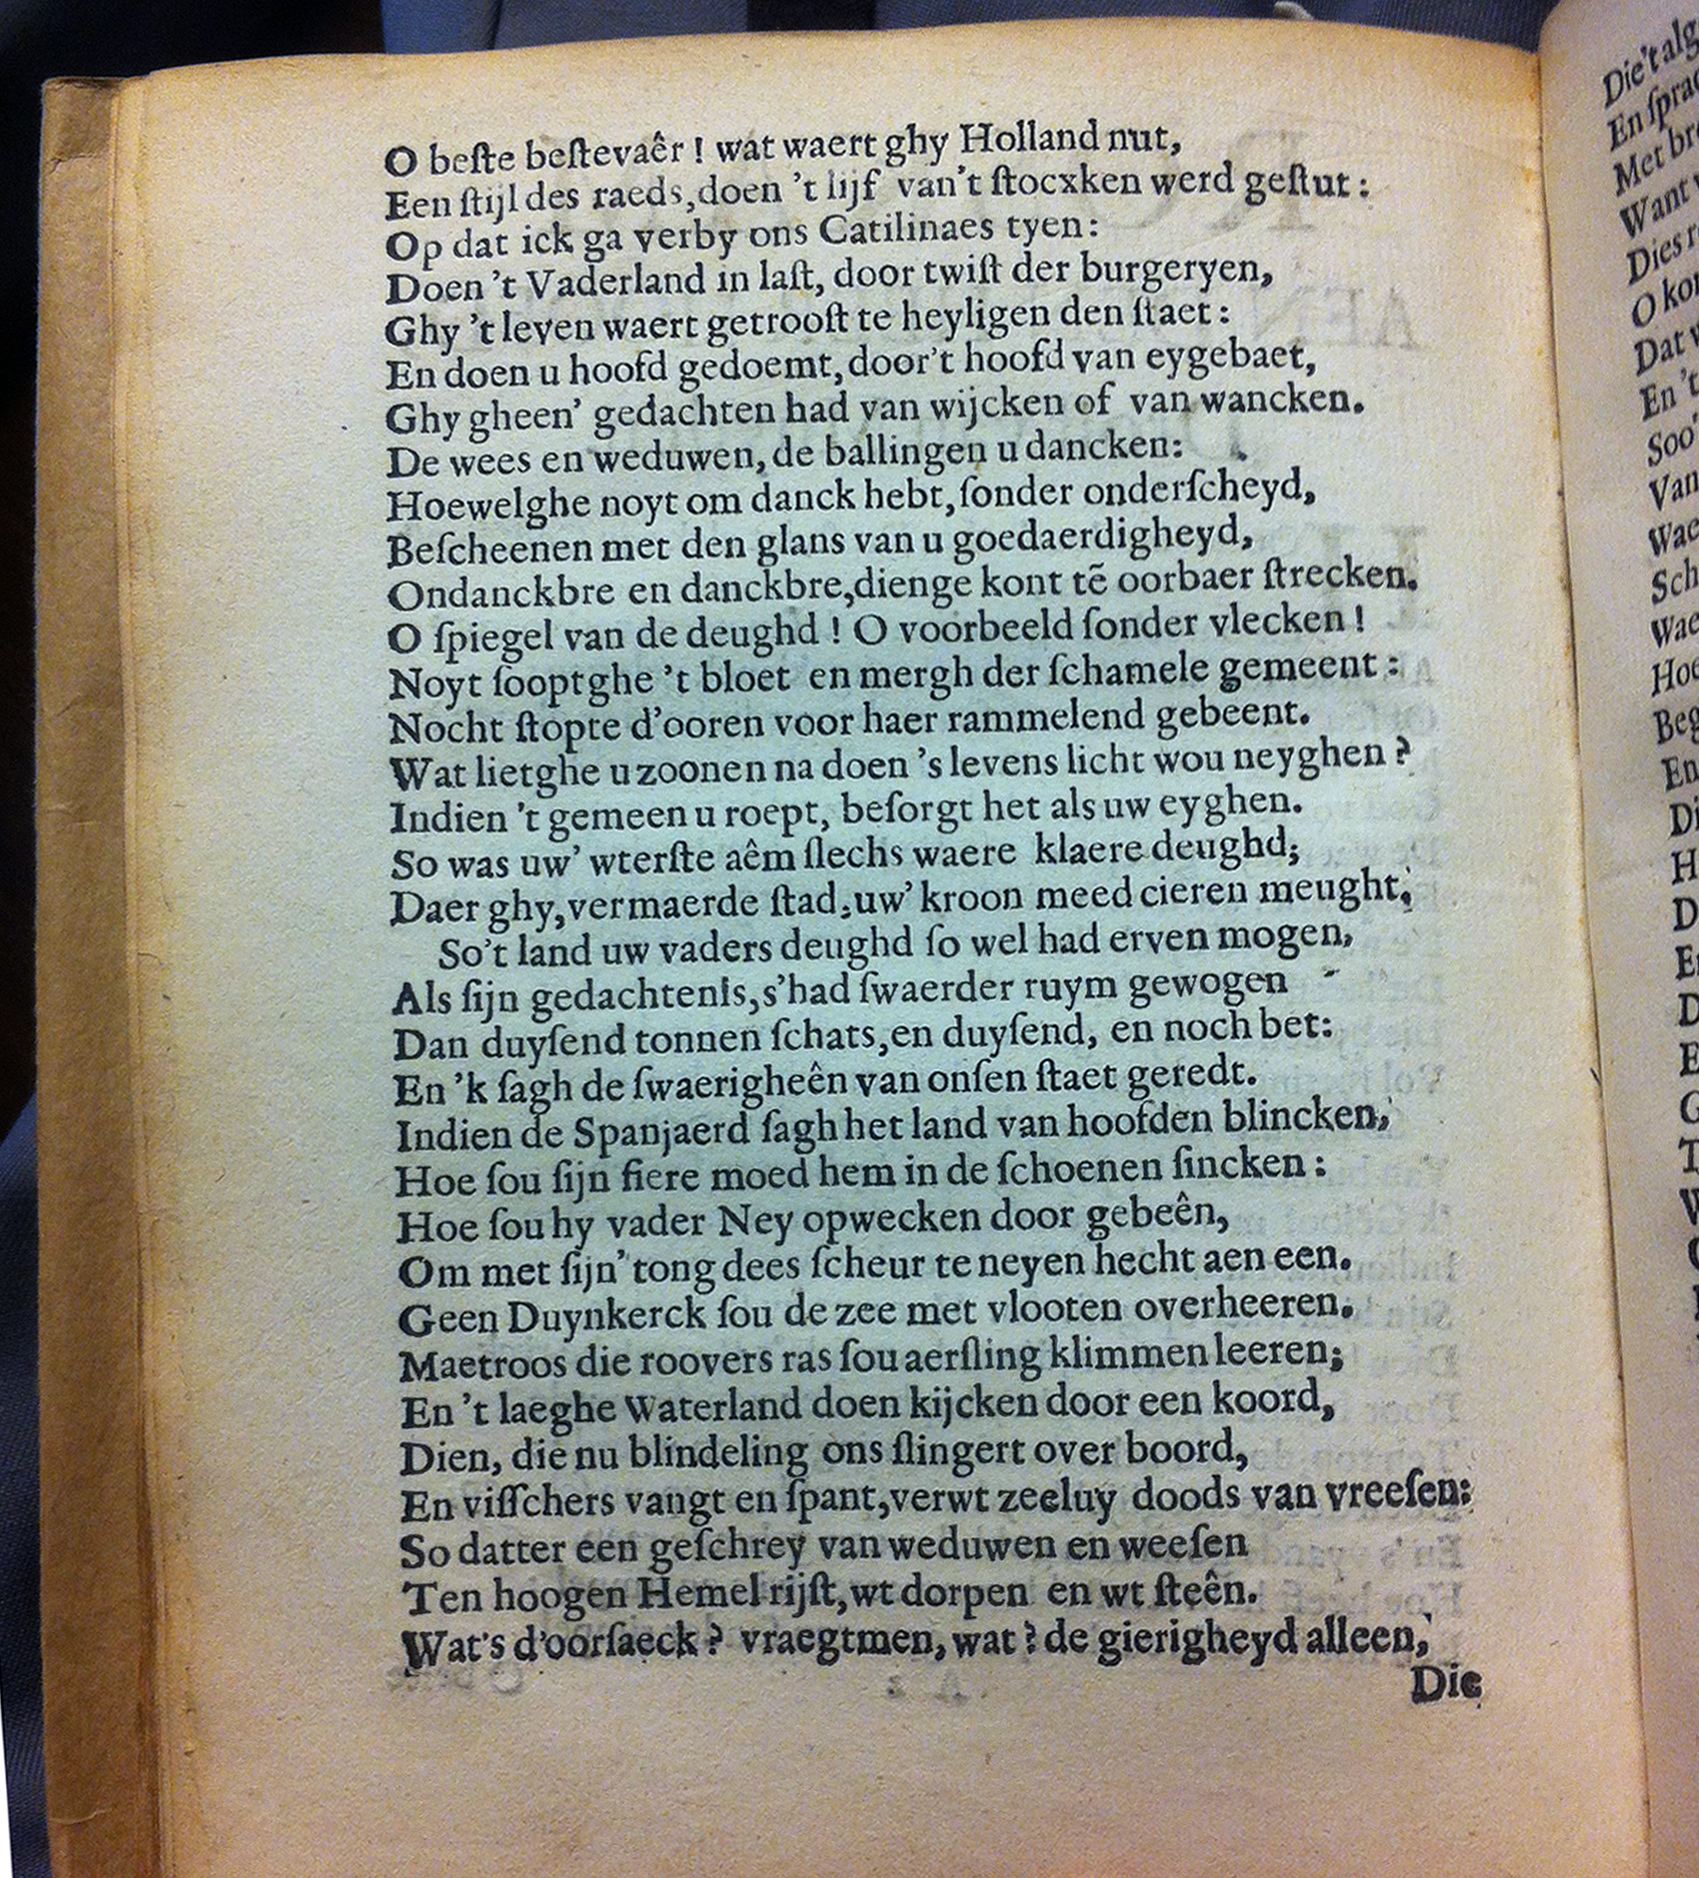 O beſte beſtevaêr ! wat waert ghy Holland nut,
Een ſtijl des raeds, doen 't lijf van't ſtocxken werd geſtut :
Op dat ick ga verby ons Catilinaes tyen :
Doen 't Vaderland in laſt, door twiſt der burgeryen,
Ghy 't leven waert getrooſt te heyligen den ſtaet :
En doen u hoofd gedoemt, door't hoofd van eygebaet,
Ghy gheen' gedachten had van wijcken of van wancken.
De wees en weduwen, de ballingen u dancken:
Hoewelghe noyt om danck hebt, ſonder onderſcheyd,
Beſcheenen met den glans van u goedaerdigheyd,
Ondanckbre en danckbre, dienge kont tẽ oorbaer ſtrecken.
O ſpiegel van de deughd ! O voorbeeld ſonder vlecken !
Noyt ſooptghe 't bloet en mergh der ſchamele gemeent :
Nocht ſtopte d'ooren voor haer rammelend gebeent.
Wat lietghe u zoonen na doen 's levens licht wou neyghen ?
Indien 't gemeen u roept, beſorgt het als uw eyghen.
So was uw' wterſte aêm ſlechs waere klaere deughd;
Daer ghy, vermaerde ſtad, uw' kroon meed cieren meught.
So't land uw vaders deughd ſo wel had erven mogen,
Als ſijn gedachtenis, s'had ſwaerder ruym gewogen
Dan duyſend tonnen ſchats, en duyſend, en noch bet:
En 'k ſagh de ſwaerigheên van onſen ſtaet geredt.
Indien de Spanjaerd ſagh het land van hoofden blincken,
Hoe ſou ſijn fiere moed hem in de ſchoenen ſincken :
Hoe ſou hy vader Ney opwecken door gebeên,
Om met ſijn' tong dees ſcheur te neyen hecht aen een.
Geen Duynkerck ſou de zee met vlooten overheeren.
Maetroos die roovers ras ſou aerſling klimmen leeren;
En 't laeghe Waterland doen kijcken door een koord,
Dien, die nu blindeling ons ſlingert over boord,
En viſſchers vangt en ſpant, verwt zeeluy doods van vreeſen:
So datter een geſchrey van weduwen en weeſen
Ten hoogen Hemel rijſt, wt dorpen en wt ſteên.
Wat's d'oorſaeck ? vraegtmen, wat ? de gierigheyd alleen,
Die
Die't alg
En ſpra
Met br
Want
Dies
O ko
Dat
En 't
Soo
Van
Wae
Sch
Wae
Hoe
Beg
En